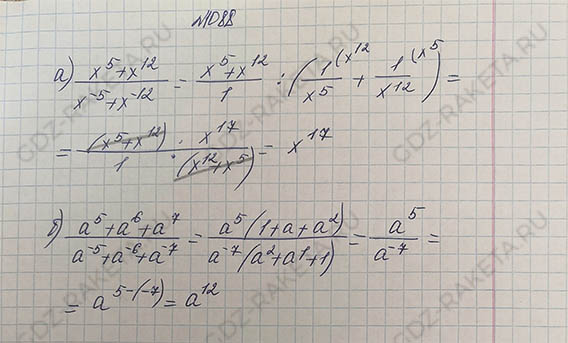 №1088
а) (x^5+x^12)/(x^-5+x^-12) = (x^5+x^12)/1 : (1/x^5 (x^12 + 1/x^12 (x^5) =
= (x^5+x^12)/1 · x^17/(x^12+x^5) = x^17
б) (a^5+a^6+a^7)/(a^-5+a^-6+a^-7) = a^5(1+a+a^2)/a^-7(a^2+a^1+1) = a^5/a^-7 =
= a^5-(-7) = a^12
GDZ-RAKETA.RU
GDZ-RAKETA.RU
GDZ-RAKETA.RU
GDZ-RAKETA.RU